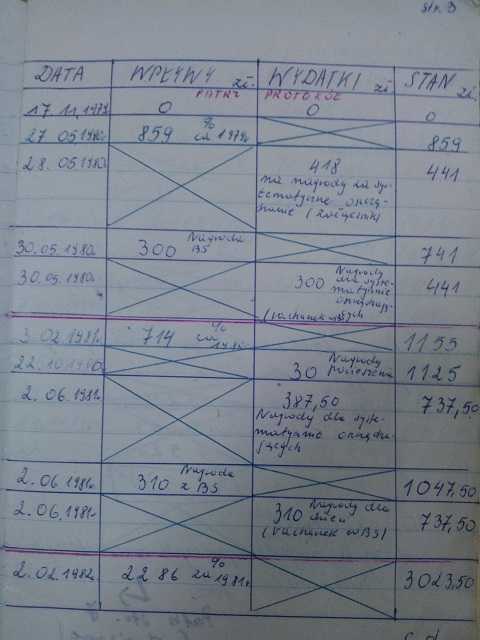 str. 3
DATA WPŁYWY zł. WYDATKI zł STAN zł.
PATRZ PROTOKÓŁ
17 11.1979 0 0 0
27 05.1980. 859 % za 1979r. 859
28.05.1980. 418 441
na nagrody za sy-
stematyczne oszczę-
dzanie
30.05.1980. 300 Nagroda 741
BS
30.05.1980. 300 Nagrody 441
dla syste-
matycznie
oszczędzają-
cych
(rachunek w BS)
3.02.1981. 714 % za 1980r. 1155
22.10.1980. 30 Nagrody 1125
2.06.1981. 387,50 737,50
Nagrody dla syste-
matycznie oszczędza-
jących
2.06.1981. 310 Nagroda 1047,50
z BS
2.06.1981. 310 Nagrody dla 737,50
(rachunek w BS)
2.02.1982. 2286 % za 1981r. 3023,50
c.d.